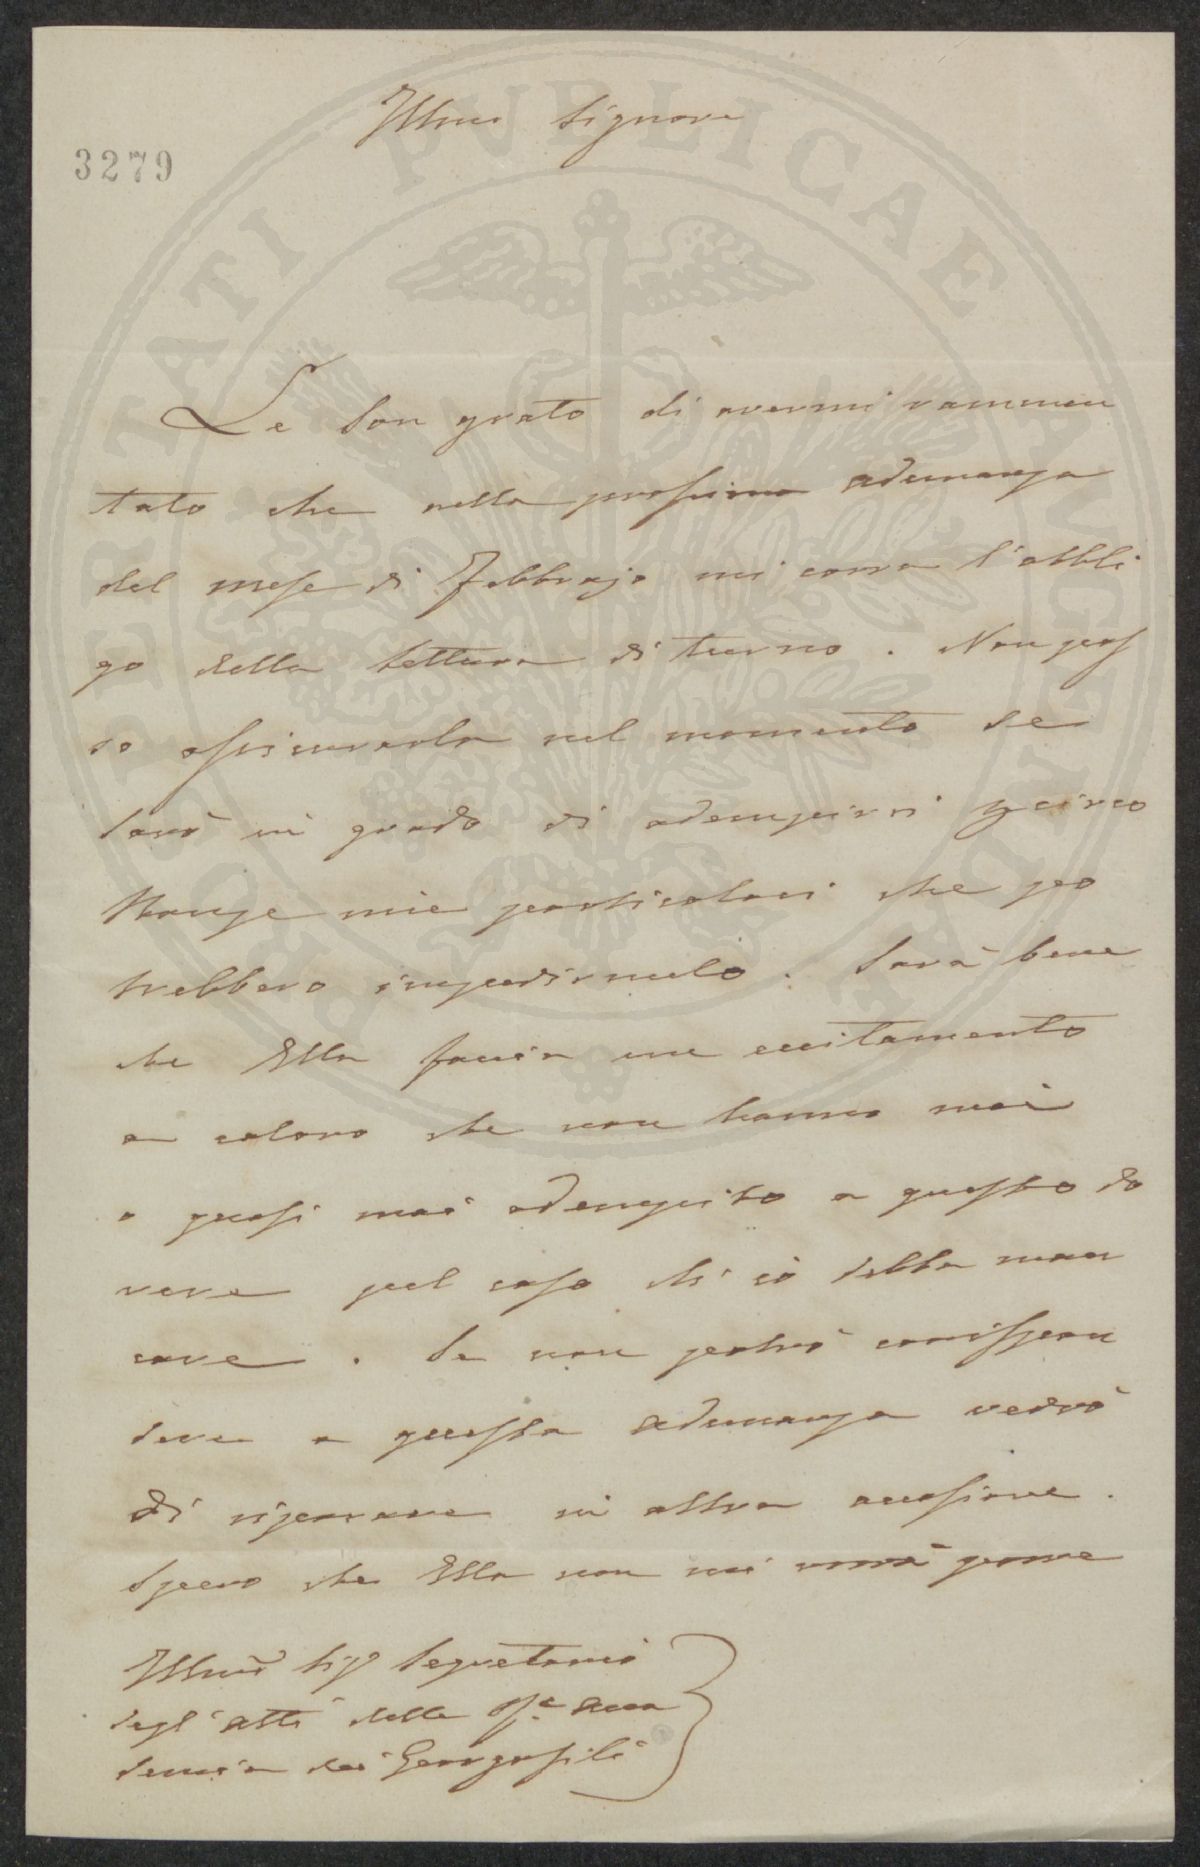 Illmo Signore
3279
Le son grato di avermi rammen
tato che nella prossima adunanza
del mese di Febbrajo mi corra l'obbli
go della lettura di turno. Non pos
so assicurarla nel momento se
sarò in grado di adempirvi p circo
stanze mie particolari che po
trebbero impedirmelo. Sarà bene
che Ella faccia un eccitamento
a coloro che non hanno mai
o quasi mai adempito a questo do
vere pel caso ch'io debba man
care. Se non potrò corrispon
dere a questa adunanza vedrò
di riparare in altra occasione.
Spero che Ella non mi vorrà porre
Illmo Sigr Segretario
degl'atti della Acca
demia dei Georgofili
PROSPERITATI PUBLICAE AUGENDAE